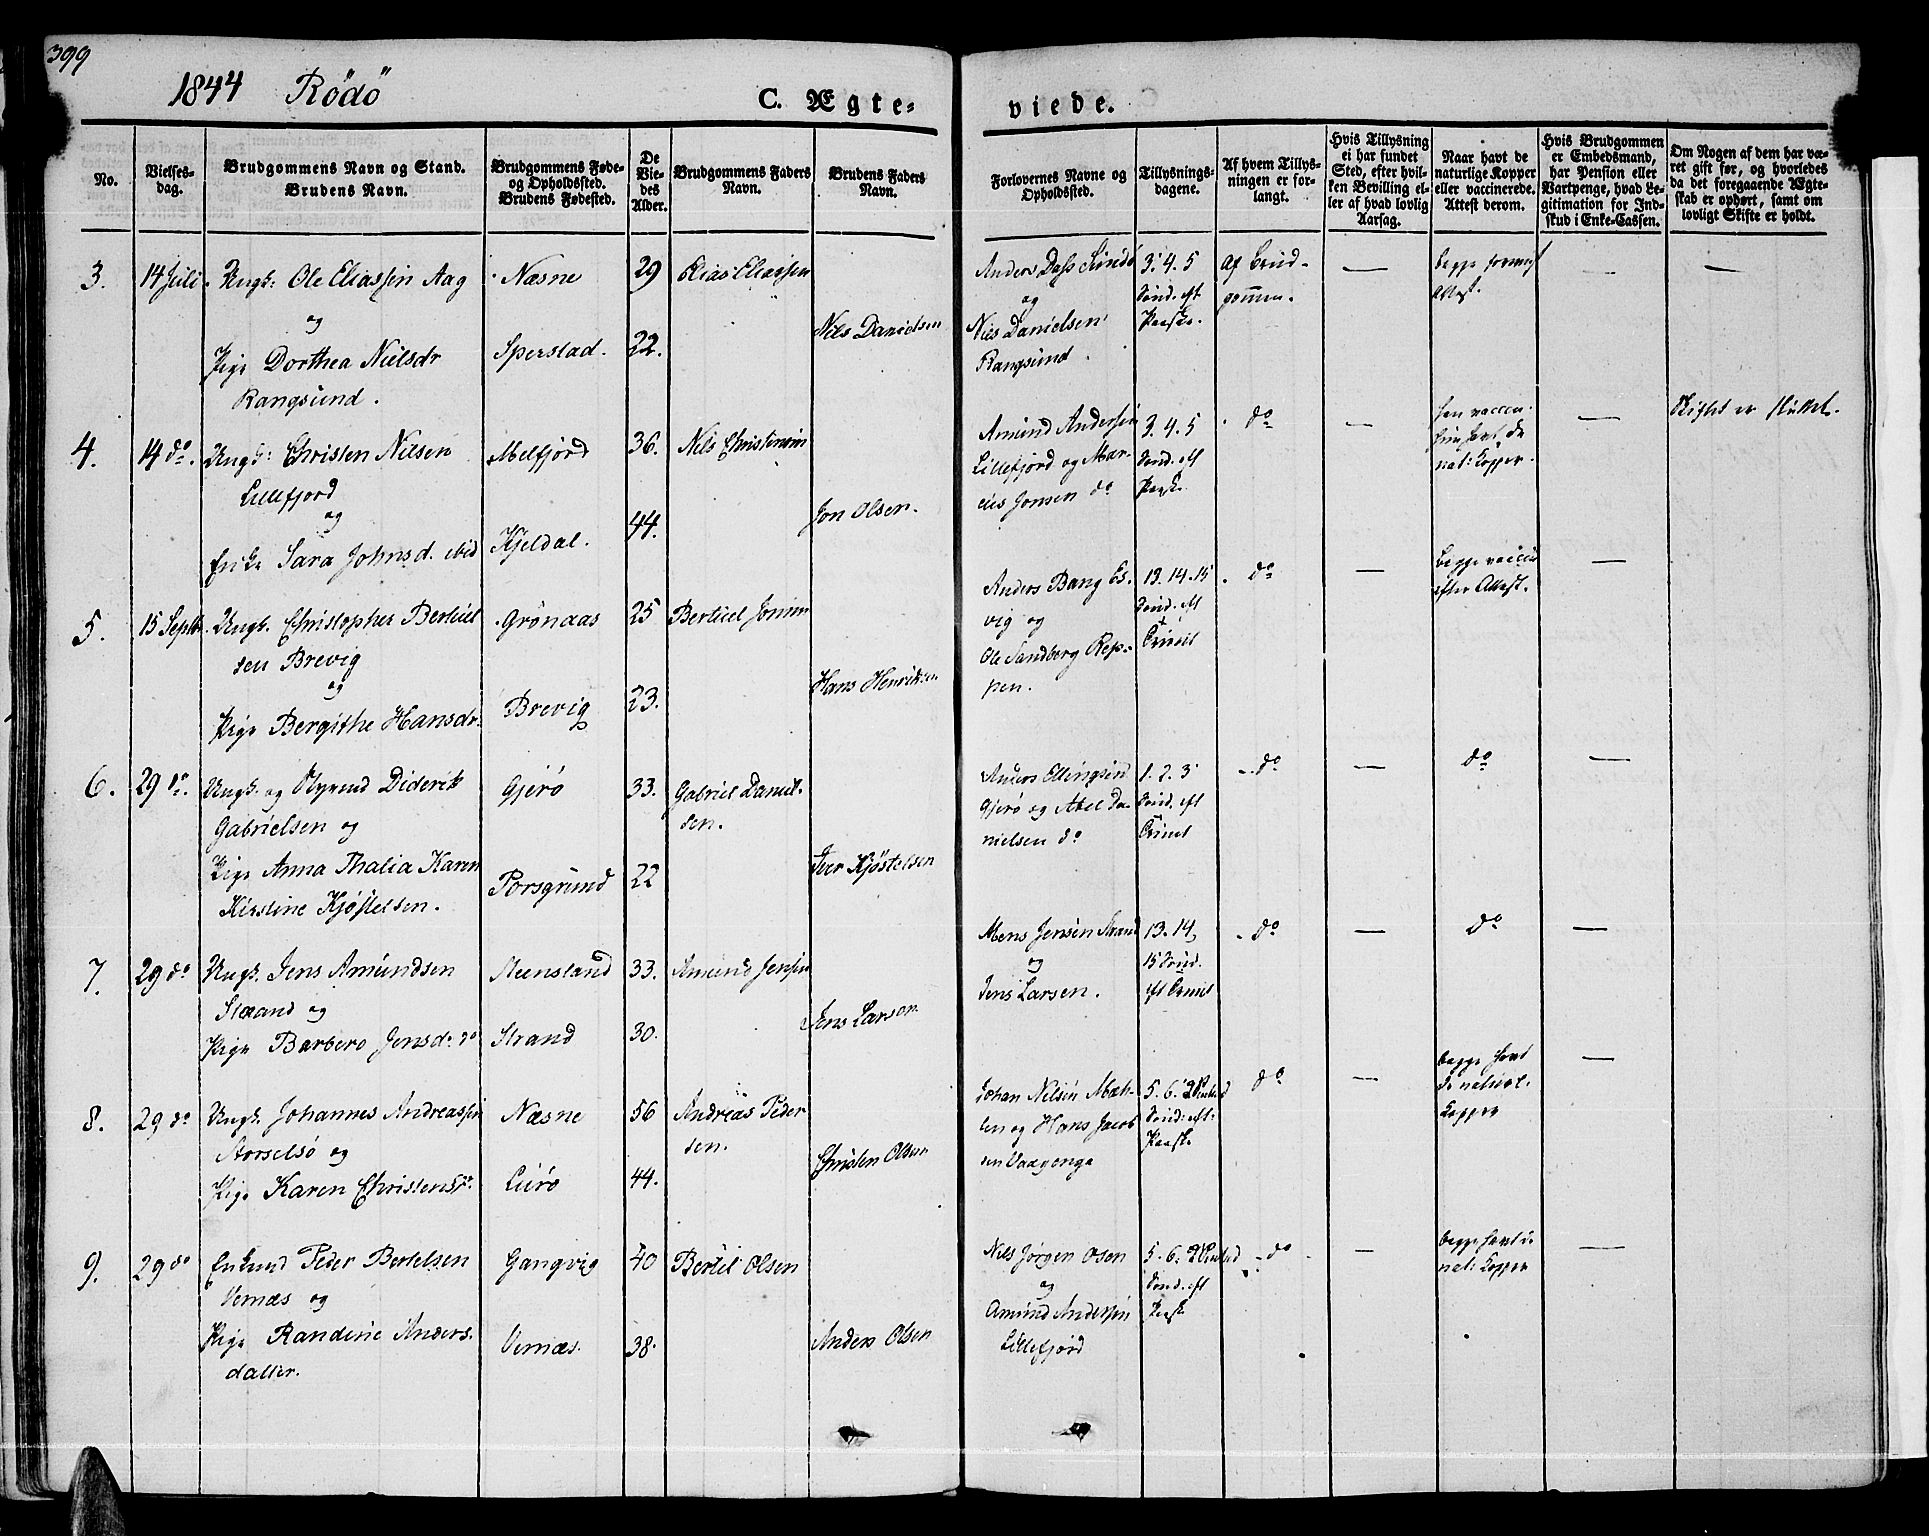 399
1844 Rödö
C. Ægte-
viede.
No.
Vielses-
dag.
Brudgommens Navn og Stand.
Brudens Navn.
Brudgommens Føde-
og Opholdssted.
Brudens Fødested.
De
Vie-
des
Alder.
Brudgommens Faders
Navn.
Brudens Faders
Navn.
Forlovernes Navne og
Opholdssted.
Tillysnings-
dagene.
Af hvem Tillys-
ningen er for-
langt.
Hvis Tillysning
ei har fundet
Sted, efter hvil-
ken Bevilling el-
ler af hvad lovlig
Aarsag.
Naar havt de
naturlige Kopper
eller vaccinerede.
Attest derom.
Hvis Brudgommen
er Embedsmand,
har Pension eller
Vartpenge, hvad Le-
gitimation for Ind-
skud i Enke-Cassen.
Om Nogen af dem har væ-
ret gift før, og hvorledes
da det foregaaende Ægte-
skab er ophørt, samt om
lovligt Skifte er holdt.
3. 14 Juli. Ungk: Ole Eliassen Aag
og
Pige Dorthea Nielsdr
Rangsund.
Næsne
Sperstad.
29
22.
Elias Eliassen
Niels Danielsen
Anders Dass Sundö
og
Niels Danielsen
Rangsund.
3. 4. 5
Sønd. eft.
Paaske.
Af Brud-
gommen.
begge
Attest.
4. 14 do. Ungk: Christen Nilsen
Lillefjord
og
Enke Sara Johnsd. ibid
Melfjord
Kjeldal.
36.
44.
Nils Christensen
Jon Olsen.
Amund Andersen
Lillefjord og Mar-
cus Jonsen do
3. 4. 5
Sønd. eft
Paaske
do
han vaccin.
hun havt de
nat: Kopper.
Skiftet er sluttet.
5. 15 Septbr. Ungk. Christopher Bertel
sen Brevig
og
Pige Bergithe Hansdr.
Grönaas
Brevig
25
23.
Bertel Jonsen
Hans Henriksen
Anders Bang Es-
vig og
Ole Sandberg Rep-
pen.
13. 14. 15
Sønd. eft
Trinit
do
begge vaccin
efter Attest.
6. 29 do. Ungk. og Diderik
Gabrielsen og
Pige Anna Thalia Karen
Kirstine Kjöstelsen.
Gjerö
Porsgrund
33.
22
Gabriel Daniel-
sen.
Iver Kjöstelsen
Anders Ellingsen
Gjerö og Abel Da-
nielsen do
1. 2. 3
Sønd. eft
Trinit
do
do
7. 29 do Ungk. Jens Amundsen
Strand og
Pige Barbero Jensd. do
Steensland
Strand
33.
30.
Amund Jensen
Jens Larsen
Mons Jensen Strand
og
Jens Larsen.
13. 14,
15 Sønd.
eft Trinit
do
do
8. 29 do Ungk. Johannes Andreassen
Storselsö og
Pige Karen Christensdr.
Næsne
Lurö
56
44.
Andreas Peder
sen.
Christen Olsen
Johan Nilsen Mæh-
len og Hans Jacob
sen Vaagenge
5. 6.
Sønd. eft.
Paaske
do
begge havt
de naturl.
Kopper
9. 29 do Enkemd Peder Bertelsen
Vernæs og
Pige Randine Anders-
datter.
Gangvig
Vernæs.
40
38.
Bertel Olsen
Anders Olsen
Nils Jörgen Olsen
og
Amund Andersen
Lillefjord
5. 6.
Sønd. eft
Paaske
do
begge havt de
nat: Kopper